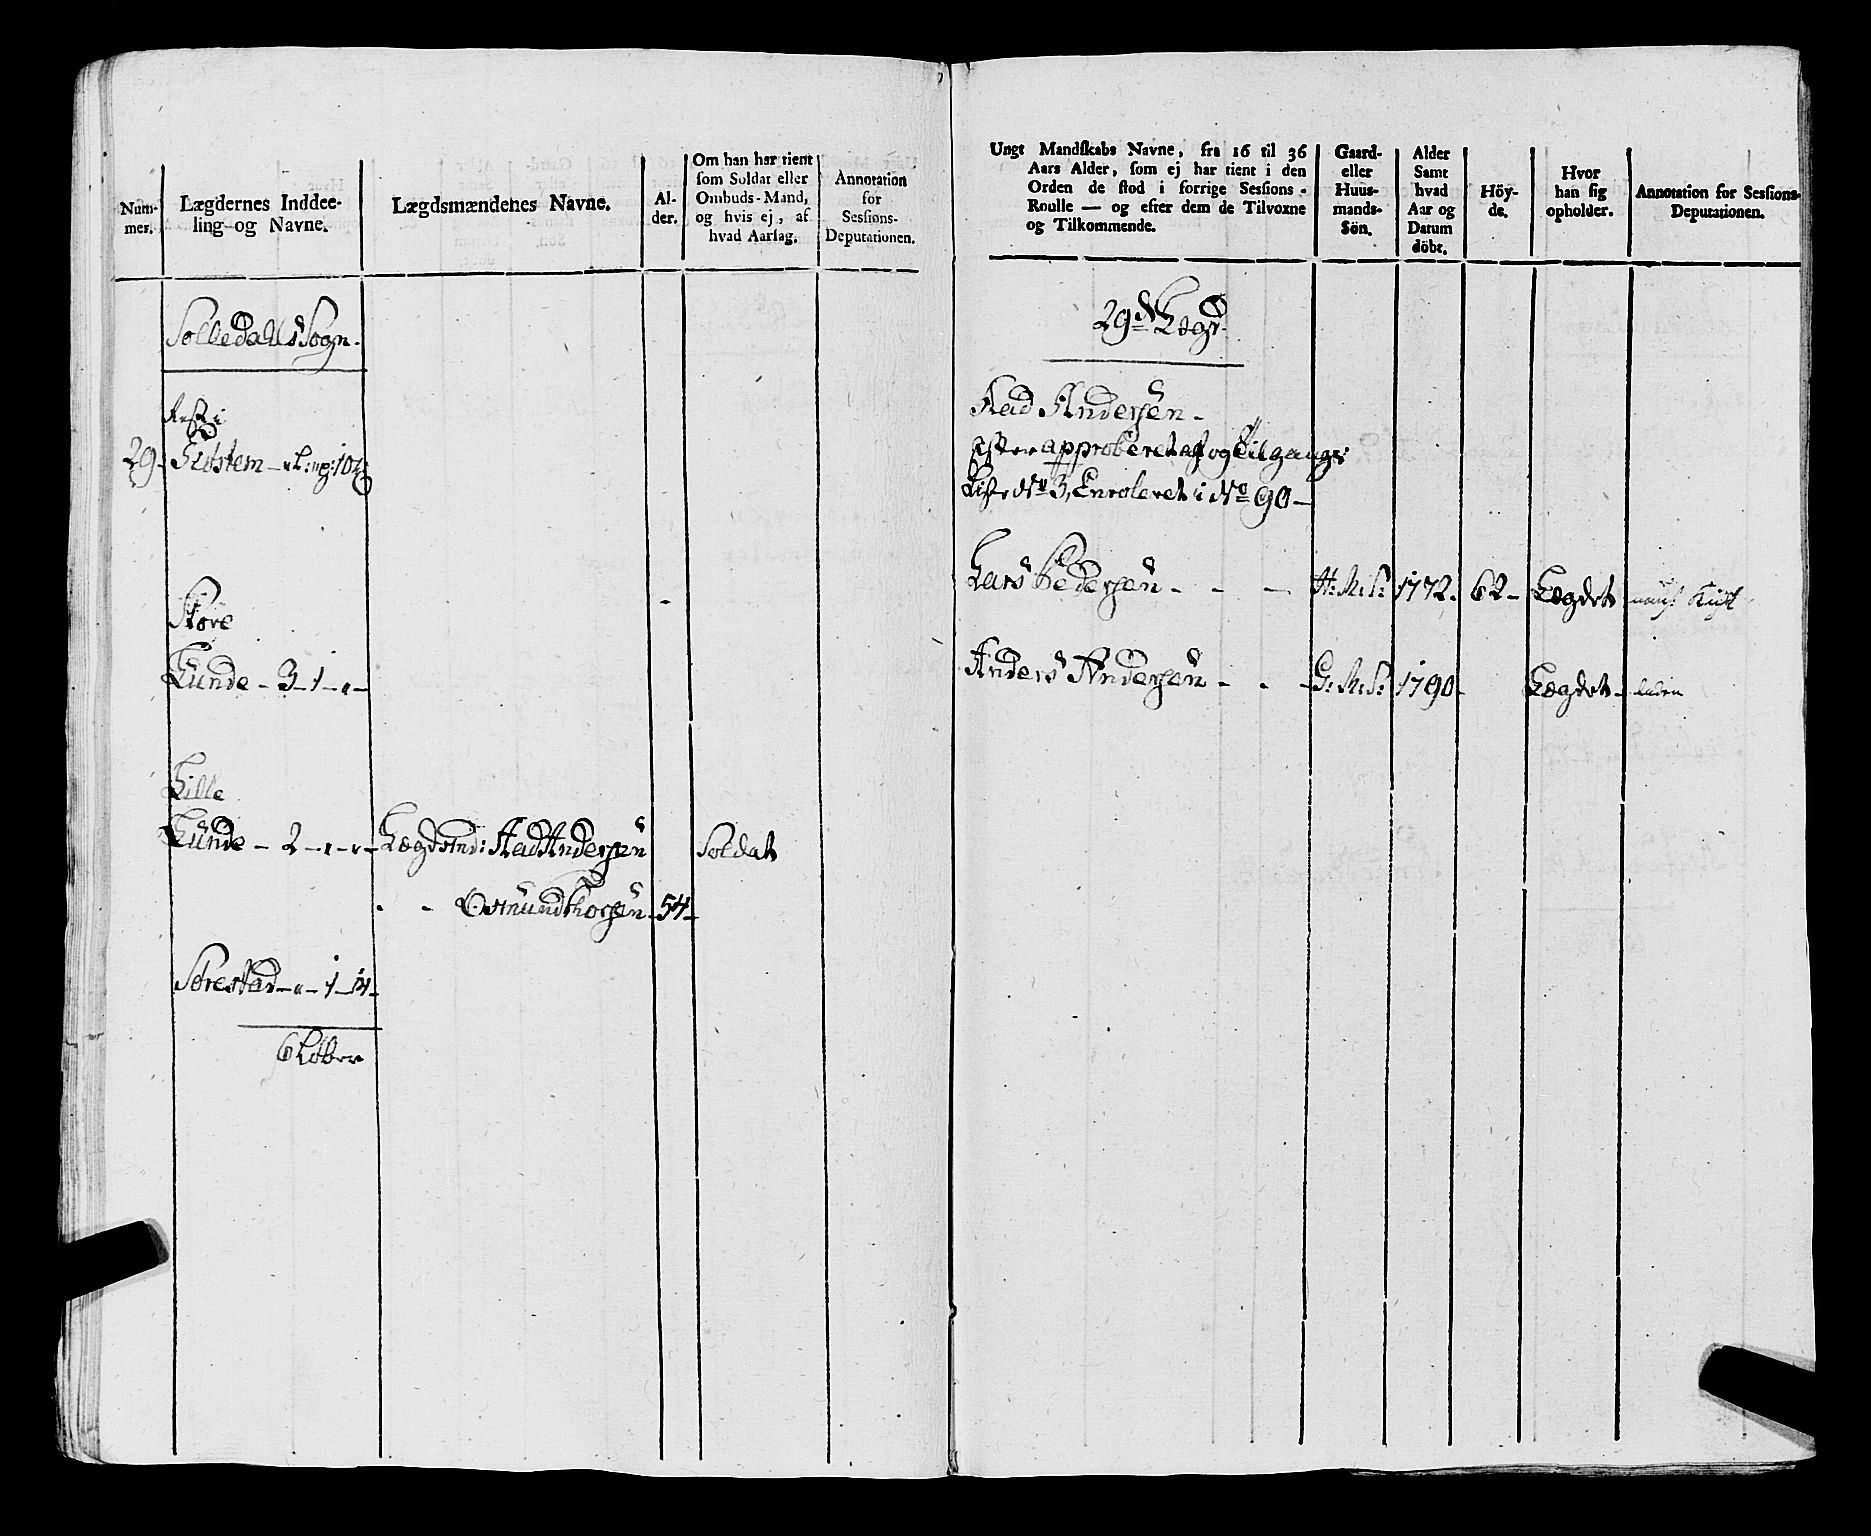 Num-
mer.
Lægdernes Inddee-
ling og Navne.
Lægdsmændenes Navne.
Al-
der.
Om han har tient
som Soldat eller
Ombuds-Mand,
og hvis ej, af
hvad Aarsag.
Annotation
for
Sessions-
Deputationen.
Sogn.
Rest i
29-
Støre
Lunde - 3 - 1 - " -
Lille
Lunde - 2 - " - " - Lægdsmd: Aad Andersen Soldat
- - Osmund Thorsen - 54 -
Sørestad - " - 1 - 14 -
6 Løber
Ungt Mandskabs Navne, fra 16 til 36
Aars Alder, som ej har tient i den
Orden de stod i forrige Sessions-
Roulle — og efter dem de Tilvoxne
og Tilkommende.
Gaard-
eller
Huus-
mands-
Sön.
Alder
Samt
hvad
Aar og
Datum
döbt.
Höy-
de.
Hvor
han sig
opholder.
Annotation for Sessions-
Deputationen.
29de Lægd.
Aad Andersen -
efter approberet af og tilgangs
Liste No 3, Enroleret i No 90 -
Lars Pedersen - - - H: M: S: 1772. 62 - Lægdet
Anders Andersen - - - G: M: S: 1790 - Lægdet - liden